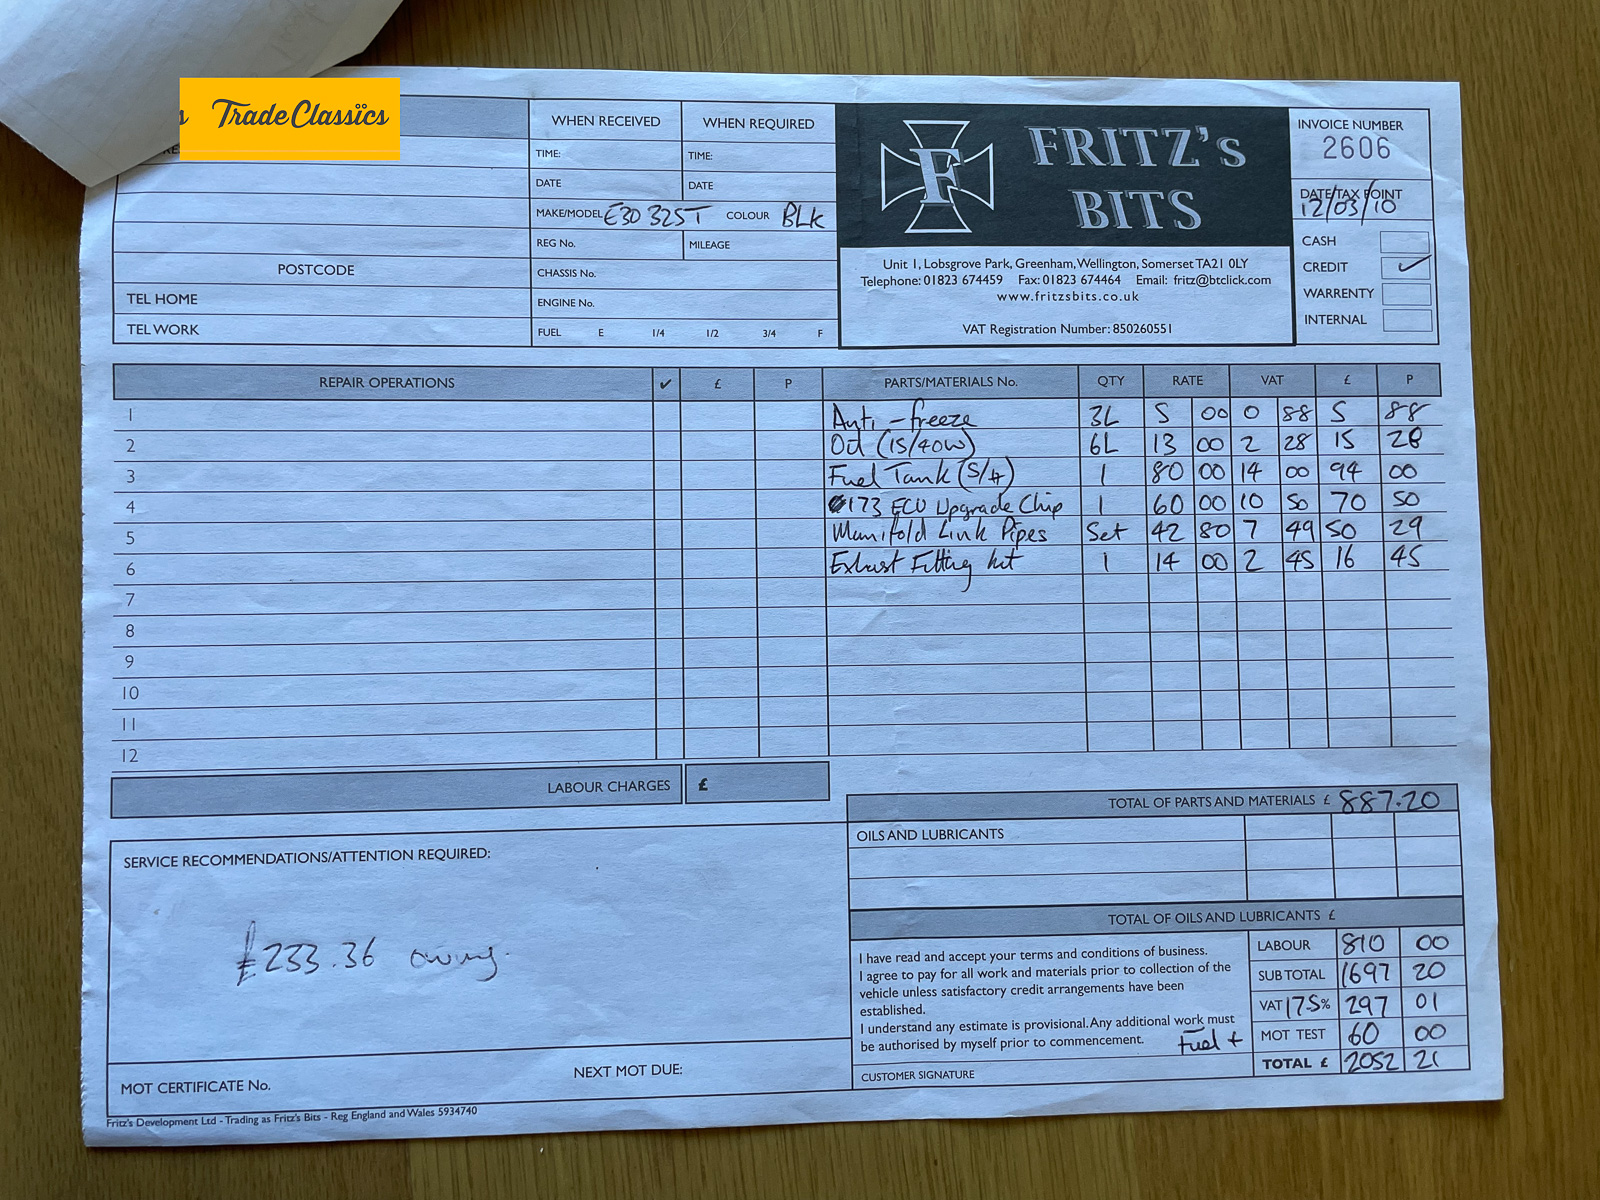 s TradeClassics
WHEN RECEIVED WHEN REQUIRED
TIME: TIME:
DATE DATE
MAKE/MODEL E30 325T COLOUR BLK
REG No. MILEAGE
CHASSIS No.
ENGINE No.
FUEL E 1/4 1/2 3/4 F
POSTCODE
TEL HOME
TEL WORK
F
FRITZ's
BITS
Unit 1, Lobsgrove Park, Greenham, Wellington, Somerset TA21 0LY
Telephone: 01823 674459 Fax: 01823 674464 Email: fritz@btclick.com
www.fritzsbits.co.uk
VAT Registration Number: 850260551
INVOICE NUMBER
2606
DATE/TAX POINT
12/03/10
CASH
CREDIT ✓
WARRENTY
INTERNAL
REPAIR OPERATIONS ✓ £ P PARTS/MATERIALS No. QTY RATE VAT £ P
1 Anti-freeze 3L 5 00 0 88 5 88
2 Oil (15/40W) 6L 13 00 2 28 15 28
3 Fuel Tank (S/H) 1 80 00 14 00 94 00
4 173 ECU Upgrade Chip 1 60 00 10 50 70 50
5 Manifold Link Pipes Set 42 80 7 49 50 29
6 Exhast Fitting kit 1 14 00 2 45 16 45
7
8
9
10
11
12
LABOUR CHARGES £
TOTAL OF PARTS AND MATERIALS £ 887.20
OILS AND LUBRICANTS
TOTAL OF OILS AND LUBRICANTS £
SERVICE RECOMMENDATIONS/ATTENTION REQUIRED:
£233.36 owing.
MOT CERTIFICATE No.
NEXT MOT DUE:
I have read and accept your terms and conditions of business.
I agree to pay for all work and materials prior to collection of the
vehicle unless satisfactory credit arrangements have been
established.
I understand any estimate is provisional. Any additional work must
be authorised by myself prior to commencement.
Fuel +
CUSTOMER SIGNATURE
LABOUR 810 00
SUB TOTAL 1697 20
VAT 17.5% 297 01
MOT TEST 60 00
TOTAL £ 2052 21
Fritz's Development Ltd - Trading as Fritz's Bits - Reg England and Wales 5934740